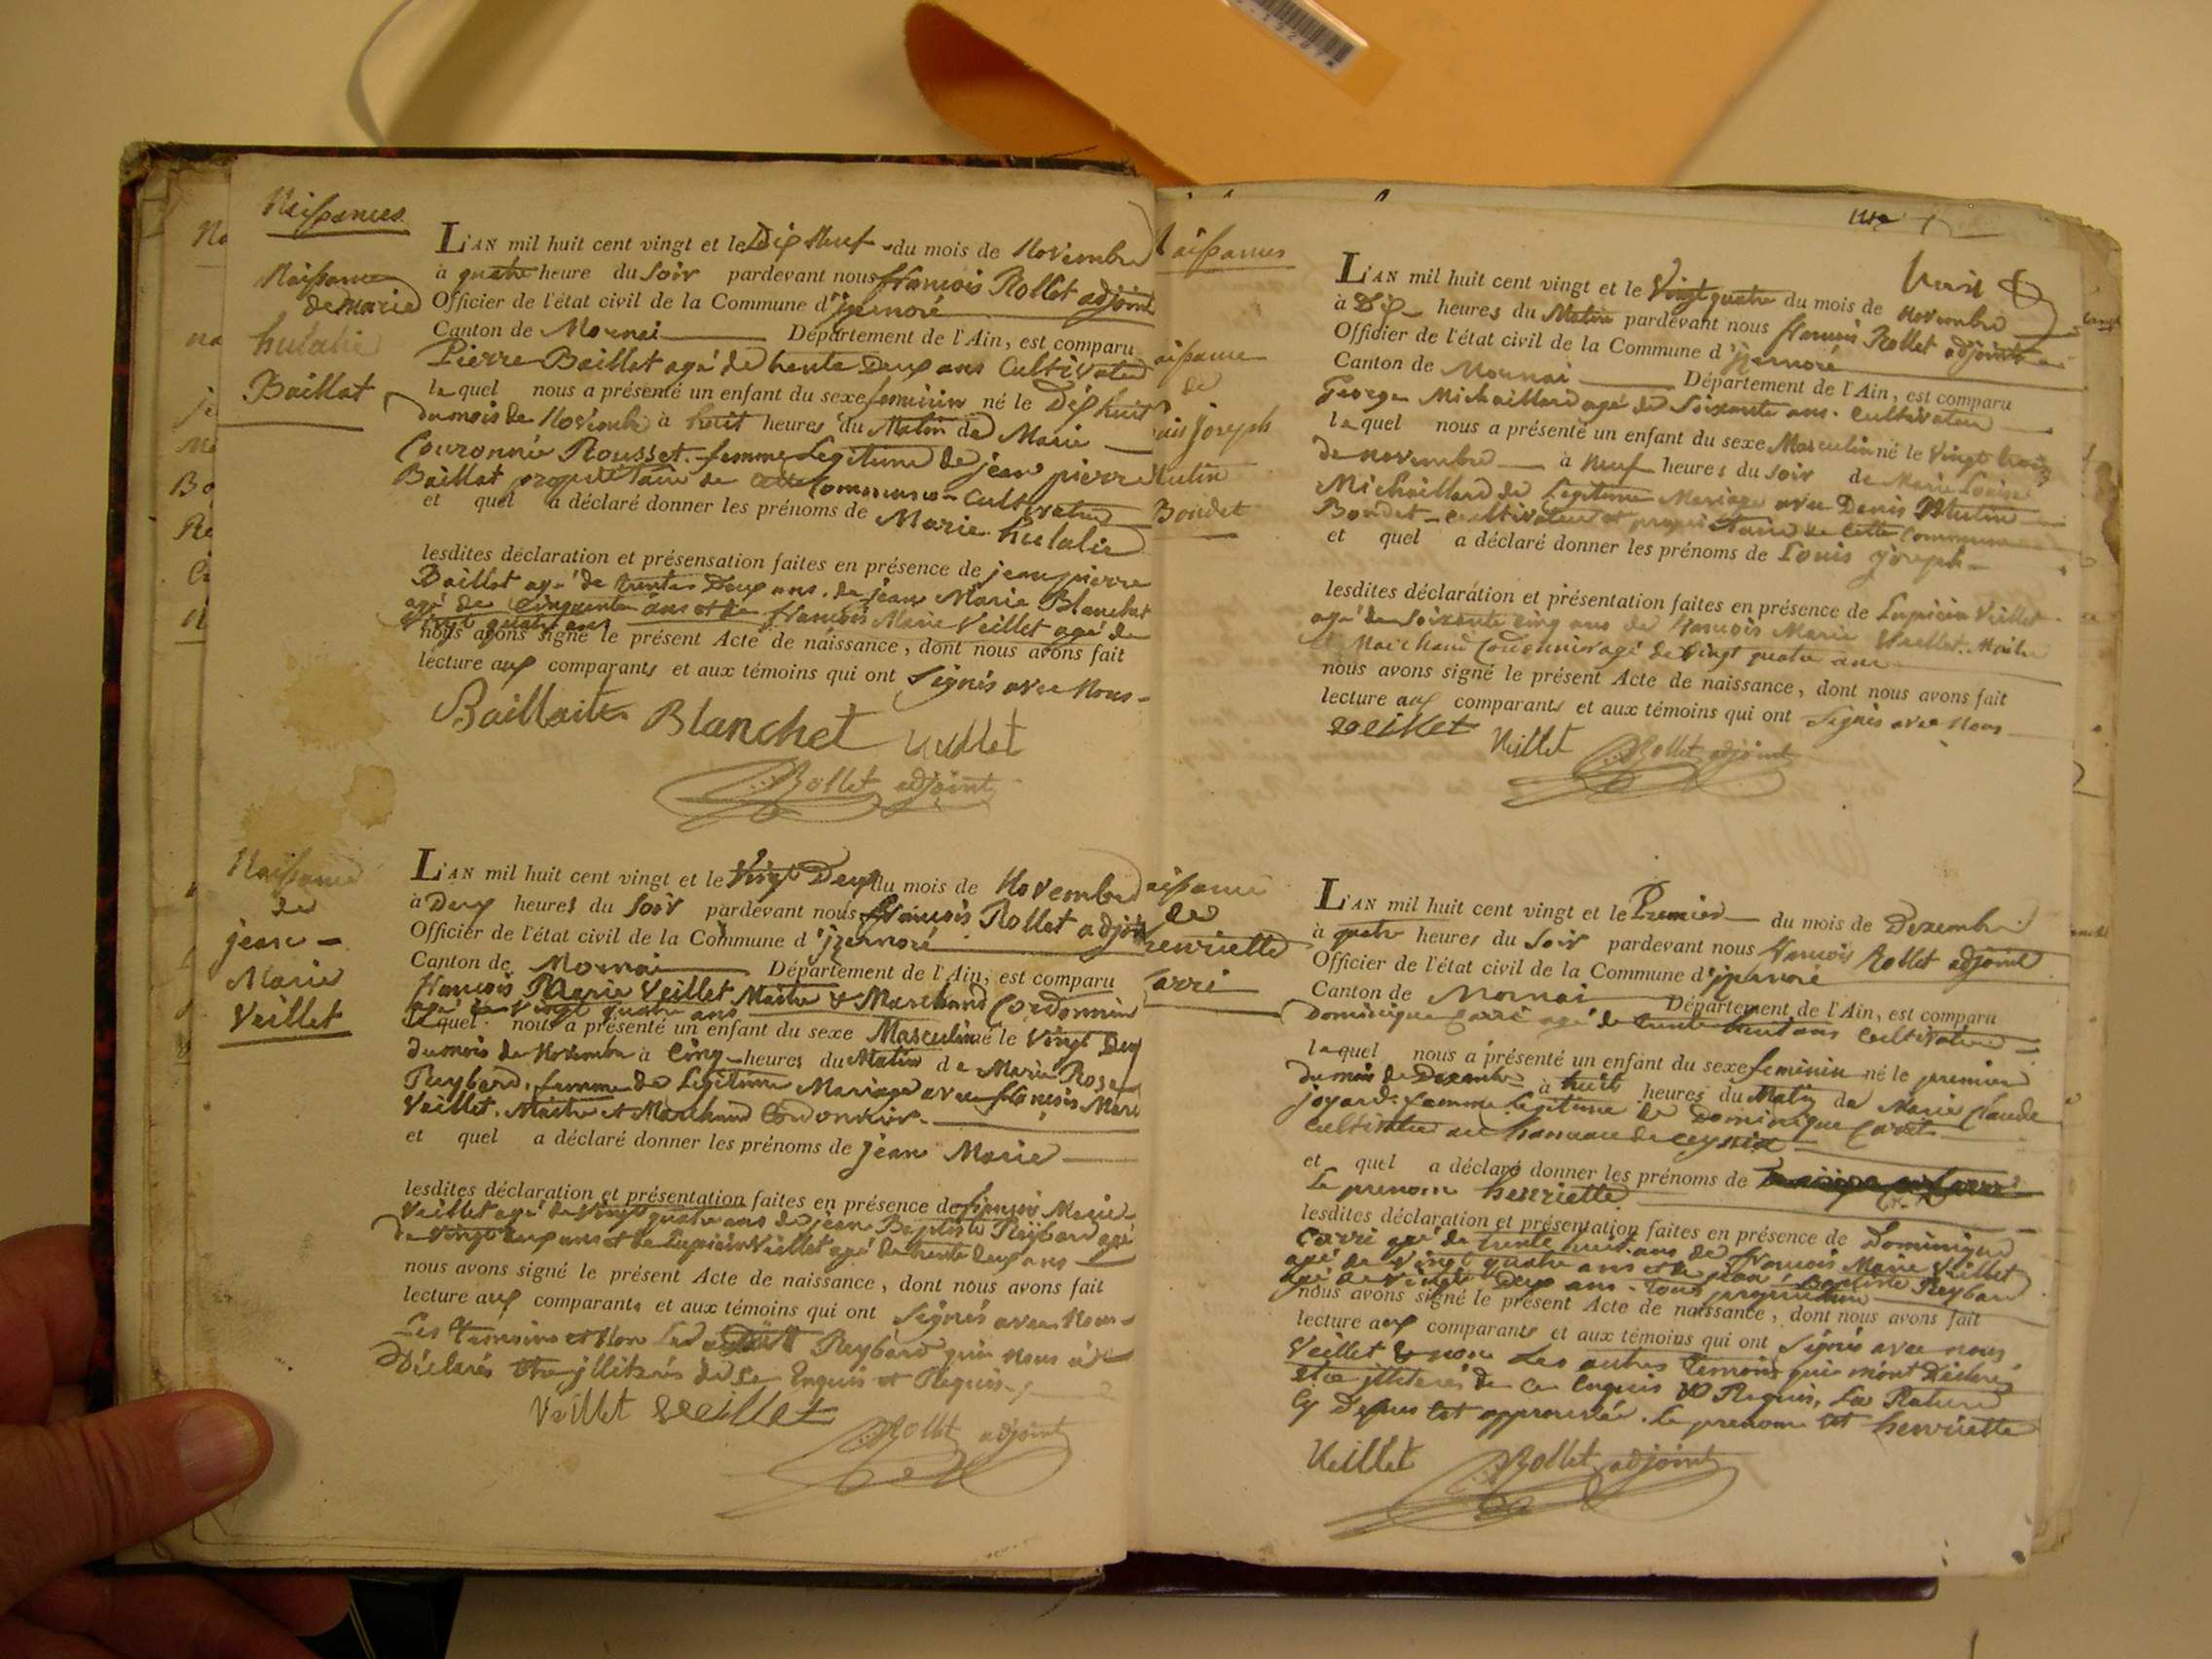 Naissances
Naissance
de marie
hulalie
Baillat
L'AN mil huit cent vingt et le Dix Neuf du mois de Novembre
à quatre heure du Soir pardevant nous françois Rollet adjoint
Officier de l'état civil de la Commune d'jzernoré
Canton de Mornai Département de l'Ain, est comparu
Pierre Baillat agé de trente Deux ans Cultivateur
lequel nous a présenté un enfant du sexe feminin né le Dix huit
du mois de Novembre à huit heures du Matin de Marie
Couronnée Rousset femme Legitime de jean pierre
Baillat propriétaire de cette Commune Cultivateur
et quel a déclaré donner les prénoms de Marie hulalie
lesdites déclaration et présensation faites en présence de jean pierre
Baillat agé de trente Deux ans, de jean Marie Blanchet
agé de Cinquante ans et de françois Marie Veillet agé de
vingt quatre ans
nous avons signé le présent Acte de naissance, dont nous avons fait
lecture aux comparants et aux témoins qui ont Signés avec Nous
Baillait Blanchet Veillet
Rollet adjoint
Naissance
de
jean
Marie
Veillet
L'AN mil huit cent vingt et le Vingt Deux du mois de Novembre
à Deux heures du Soir pardevant nous françois Rollet adjoin
Officier de l'état civil de la Commune d'jzernoré
Canton de Mornai Département de l'Ain, est comparu
françois Marie Veillet Maitre & Marchand Cordonnier
agé de vingt quatre ans
lequel nous a présenté un enfant du sexe Masculin né le Vingt Deux
du mois de Novembre à Cinq heures du Matin de Marie Rose
Reybard, femme de Legitime Mariage avec françois Mari
Veillet, Maitre et Marchand Cordonnier
et quel a déclaré donner les prénoms de jean Marie
lesdites déclaration et présentation faites en présence de françois Marie
Veillet agé de vingt quatre ans de jean Baptiste Reybard agé
de vingt deux ans et de Lupicin Veillet agé de trente deux ans
nous avons signé le présent Acte de naissance, dont nous avons fait
lecture aux comparants et aux témoins qui ont Signés avec Nous
Les temoins et Non Led Reybard qui nous a
Déclarés être jllitérés de ce Enquis et Requis
Veillet veillet
Rollet adjoint
aissances
aissance
de
uis joseph
Mutin
Bondet
L'AN mil huit cent vingt et le Vingt quatre du mois de Novembre
à Dix heures du Matin pardevant nous françois Rollet adjoint
Officier de l'état civil de la Commune d'jzernoré
Canton de Mornai Département de l'Ain, est comparu
George Michaillard agé de Soixante ans. Cultivateur
lequel nous a présenté un enfant du sexe Masculin né le Vingt trois
de novembre à Neuf heures du Soir de Marie Louise
Michaillard de Legitime Mariage avec Denis Mutin
Bondet cultivateur et propriétaire de Cette Commune
et quel a déclaré donner les prénoms de Louis joseph
lesdites déclaration et présentation faites en présence de Lupicin Veillet
agé de Soixante cinq ans de françois Marie Veillet. Maitre
& Marchand Cordonnier agé de vingt quatre ans
nous avons signé le présent Acte de naissance, dont nous avons fait
lecture aux comparants et aux témoins qui ont Signés avec Nous
veillet Veillet
Rollet adjoint
aissance
de
enriette
arri
L'AN mil huit cent vingt et le Premier du mois de Dexembre
à quatre heures du Soir pardevant nous françois Rollet adjoint
Officier de l'état civil de la Commune d'jzernoré
Canton de Mornai Département de l'Ain, est comparu
Dominique Carri agé de trente huit ans Cultivateur
lequel nous a présenté un enfant du sexe feminin né le premier
du mois de Dexembre à huit heures du Matin de Marie Claude
joyard femme Legitime de Dominique Carri
Cultivateur au hameau de Ceyssia
et quel a déclaré donner les prénoms de
Le prenom henriette
lesdites déclaration et présentation faites en présence de Dominique
Carri agé de trente huit ans de françois Marie Veillet
agé de vingt quatre ans et de jean Baptiste Reybard
agé de vingt Deux ans. tous
nous avons signé le présent Acte de naissance, dont nous avons fait
lecture aux comparants et aux témoins qui ont Signés avec nous
Veillet & non Les autres temoins qui m'ont Déclarés
etre jlliterés de ce Enquis & Requis, La Rature
Cy Dessus est approuvée. Le prenom est henriette
Veillet Rollet adjoint